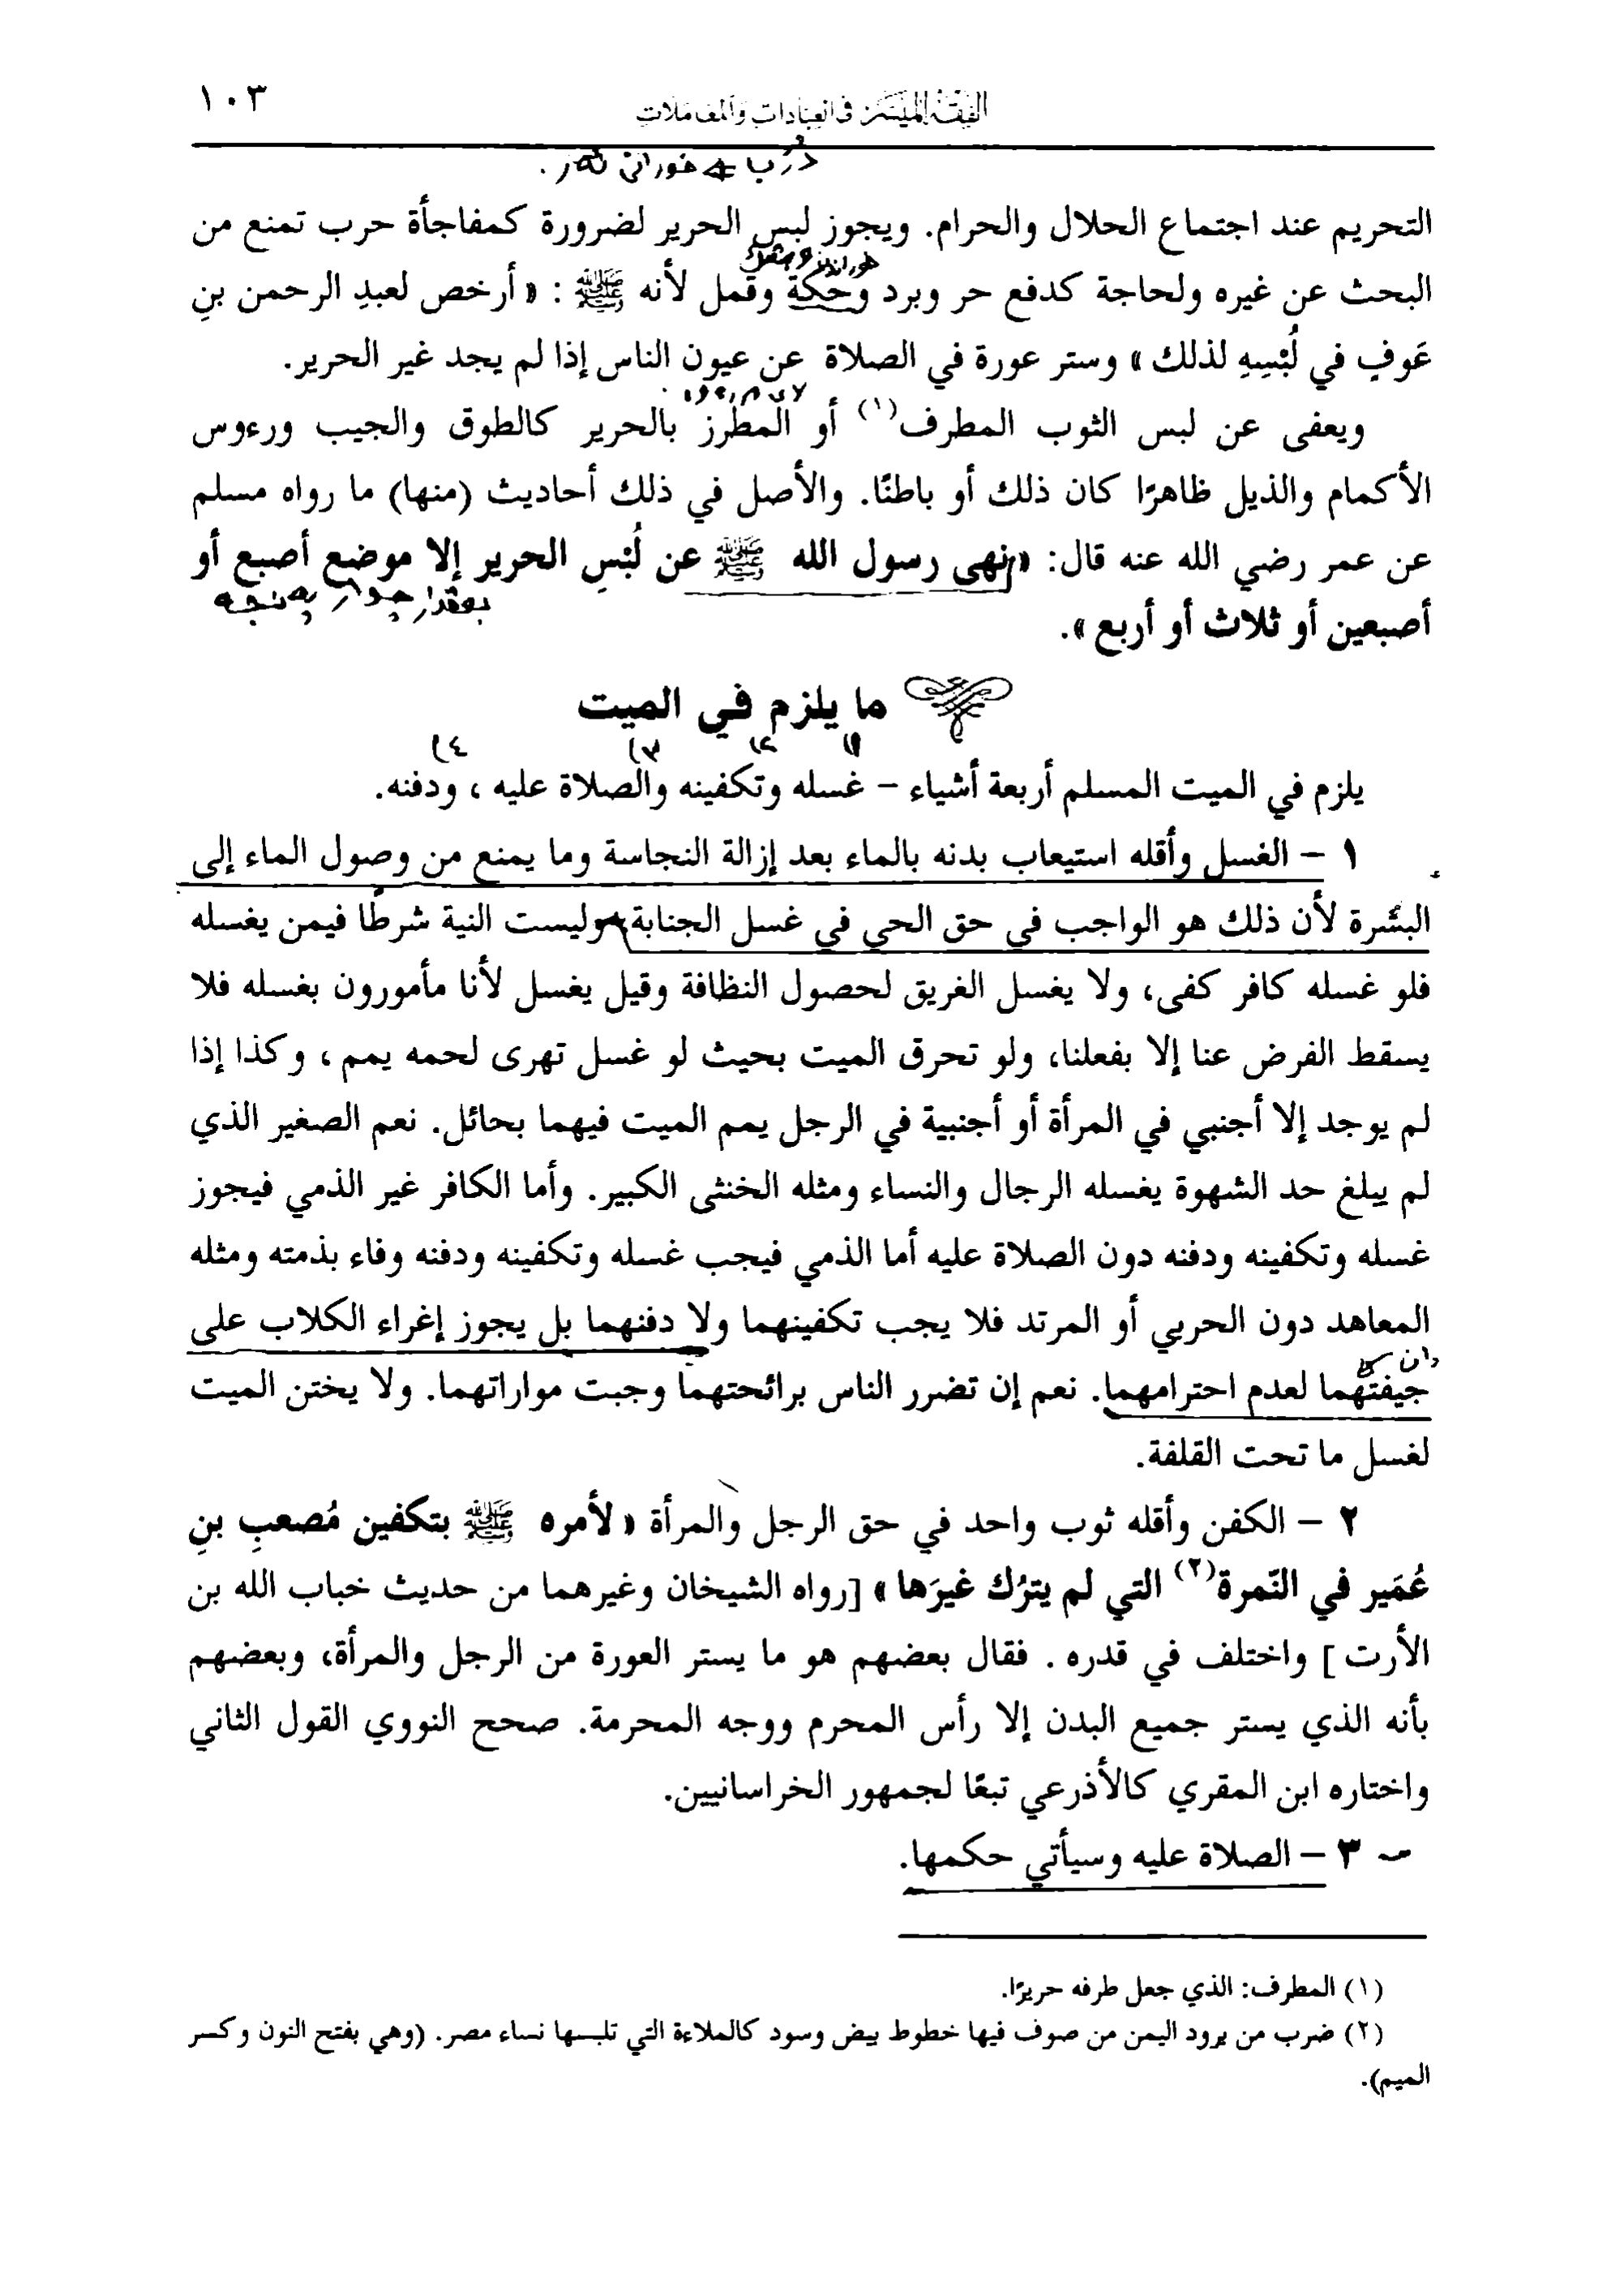 الفقه الميسر في العبادات والمعاملات
١٠٣
التحريم عند اجتماع الحلال والحرام. ويجوز لبس الحرير لضرورة كمفاجأة حرب تمنع من
البحث عن غيره ولحاجة كدفع حر وبرد وحكة وقمل لأنه ﷺ : « أرخص لعبدِ الرحمن بنِ
عَوفٍ في لُبْسِهِ لذلك » وستر عورة في الصلاة عن عيون الناس إذا لم يجد غير الحرير.
ويعفى عن لبس الثوب المطرف(١) أو المطرز بالحرير كالطوق والجيب ورءوس
الأكمام والذيل ظاهرًا كان ذلك أو باطنًا. والأصل في ذلك أحاديث (منها) ما رواه مسلم
عن عمر رضي الله عنه قال: « نهى رسول الله ﷺ عن لُبْسِ الحرير إلا موضع أصبع أو
أصبعين أو ثلاث أو أربع ».
ما يلزم في الميت
١) ٢) ٣) ٤)
يلزم في الميت المسلم أربعة أشياء – غسله وتكفينه والصلاة عليه ، ودفنه.
١ – الغسل وأقله استيعاب بدنه بالماء بعد إزالة النجاسة وما يمنع من وصول الماء إلى
البشرة لأن ذلك هو الواجب في حق الحي في غسل الجنابة وليست النية شرطًا فيمن يغسله
فلو غسله كافر كفى، ولا يغسل الغريق لحصول النظافة وقيل يغسل لأنا مأمورون بغسله فلا
يسقط الفرض عنا إلا بفعلنا، ولو تحرق الميت بحيث لو غسل تهرى لحمه يمم ، وكذا إذا
لم يوجد إلا أجنبي في المرأة أو أجنبية في الرجل يمم الميت فيهما بحائل. نعم الصغير الذي
لم يبلغ حد الشهوة يغسله الرجال والنساء ومثله الخنثى الكبير. وأما الكافر غير الذمي فيجوز
غسله وتكفينه ودفنه دون الصلاة عليه أما الذمي فيجب غسله وتكفينه ودفنه وفاء بذمته ومثله
المعاهد دون الحربي أو المرتد فلا يجب تكفينهما ولا دفنهما بل يجوز إغراء الكلاب على
جيفتهما لعدم احترامهما. نعم إن تضرر الناس برائحتهما وجبت مواراتهما. ولا يختن الميت
لغسل ما تحت القلفة.
٢ – الكفن وأقله ثوب واحد في حق الرجل والمرأة « لأمره ﷺ بتكفين مُصعبِ بنِ
عُمَير في النّمرة(٢) التي لم يترُك غيرَها » [رواه الشيخان وغيرهما من حديث خباب الله بن
الأرت ] واختلف في قدره . فقال بعضهم هو ما يستر العورة من الرجل والمرأة، وبعضهم
بأنه الذي يستر جميع البدن إلا رأس المحرم ووجه المحرمة. صحح النووي القول الثاني
واختاره ابن المقري كالأذرعي تبعًا لجمهور الخراسانيين.
٣ – الصلاة عليه وسيأتي حكمها.
(١) المطرف: الذي جعل طرفه حريرًا.
(٢) ضرب من برود اليمن من صوف فيها خطوط بيض وسود كالملاءة التي تلبسها نساء مصر. (وهي بفتح النون وكسر
الميم).